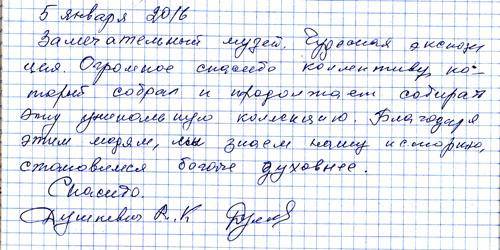 5 января 2016
Замечательный музей. Чудесная экспози
ция. Огромное спасибо коллективу, ко-
торый собрал и продолжает собират
эту уникальную колекцию. Благодаря
этим людям, мы знаем нашу историю,
становимся богаче духовнее.
Спасибо.
Душкевич А.К